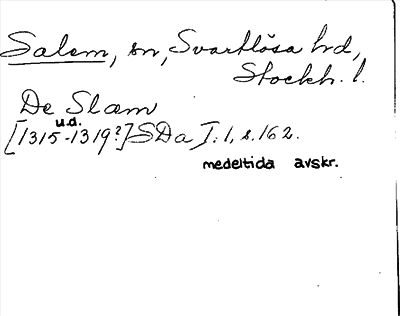 Salem, sn, Svartlösa hrd,
Stockh. l.
De Slæm
u.d.
[1315-1319?] SDa I:1, s. 162.
medeltida avskr.